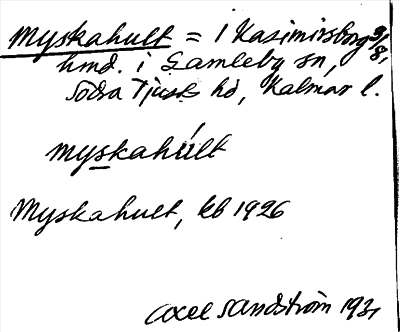 Myskahult = i Kasimirsborg 9/8,
hmd. i Gamleby sn,
Södra Tjusts hd, Kalmar l.
myskahúlt
Myskahult, kb 1926
Axel Sandström 1931